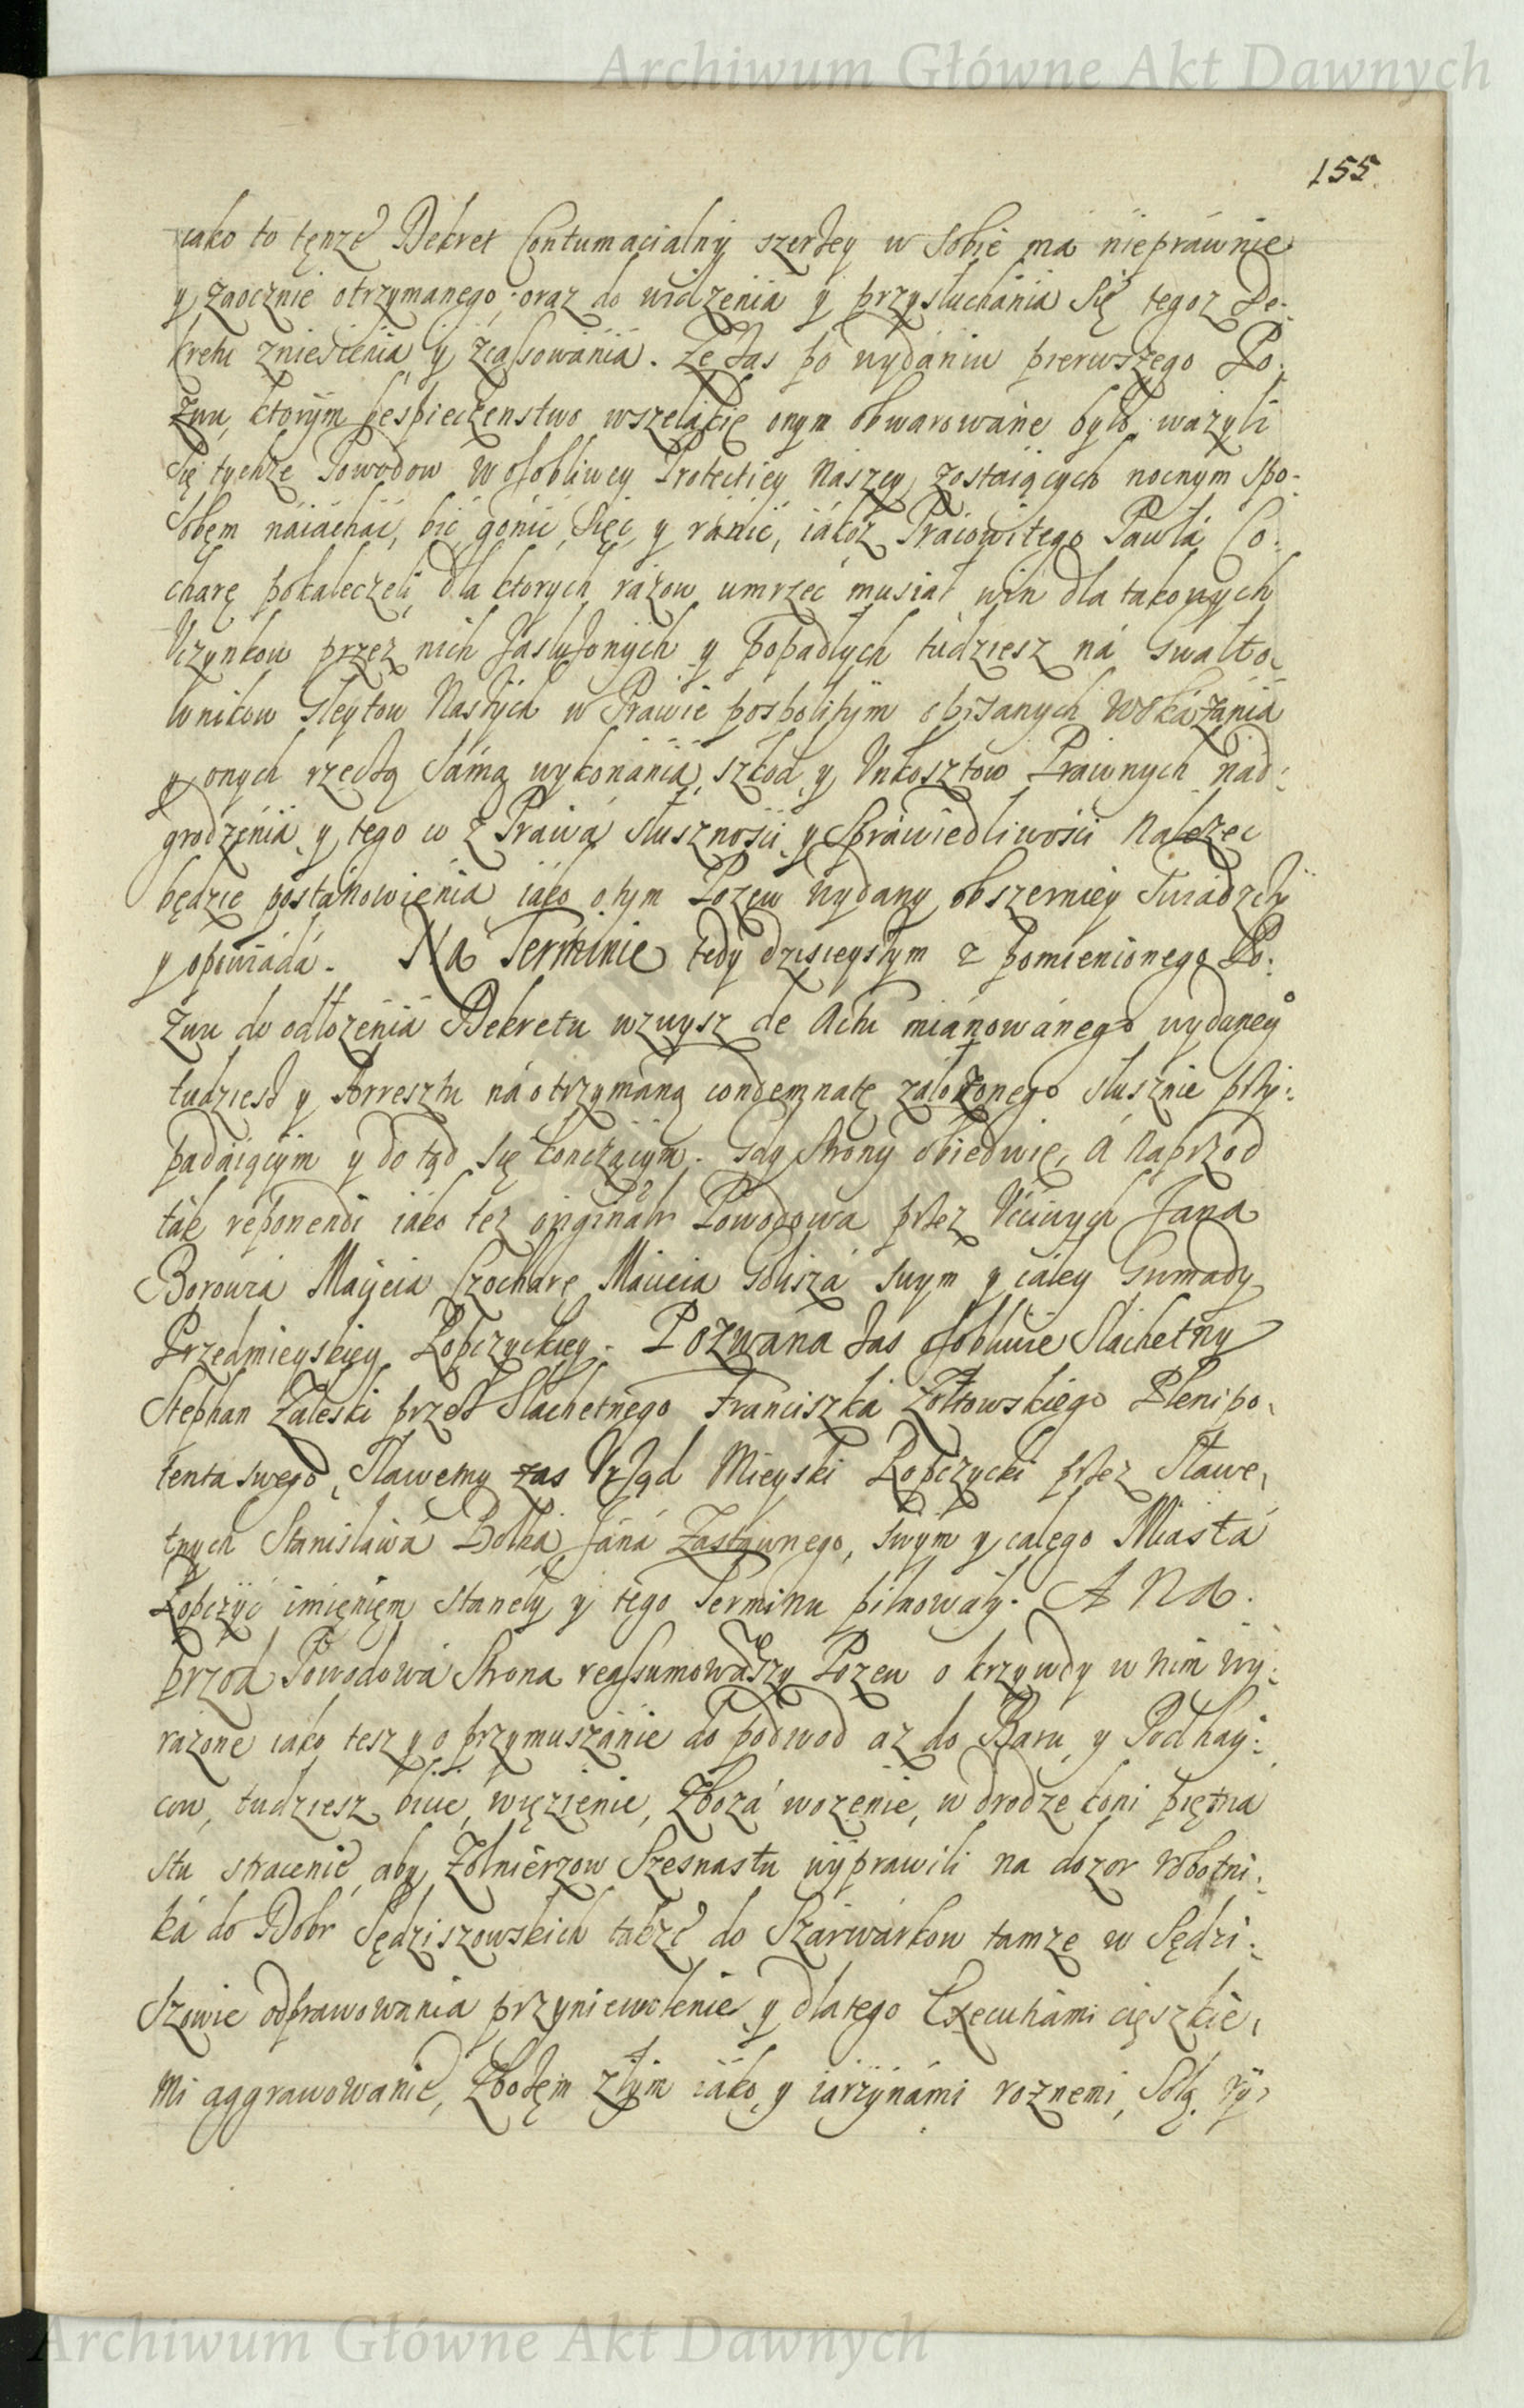 Archiwum Główne Akt Dawnych
155.
iako to tęnże Dekret Contumacialny szerzey w sobie ma nieprawnie
y zaocznie otrzymanego, oraz do widzenia y przysłuchania Się tegoz De-
kretu zniesienia y zcassowania. Ze zas po wydaniu pierwszego Po-
zwu, ktorym bespieczenstwo wszelakie onym obwarowane było, wazyli
Się tychze Powodow w osobliwey Protectiey Naszey zostaiących nocnym spo-
sobem naiachać, bić, gonić, Siec, y ranić, iakoz Pracowitego Pawła Co-
charę pokaleczeli, dla ktorych razow umrzeć musiał, win dla takowych
Uczynkow przez nich zasłuzonych y popadłych tudziesz na Gwałto-
wnikow Gleytow Naszych w Prawie pospolitym opisanych wskazania
y onych rzeczą samą wykonania, szkod y Unkosztow Prawnych nad-
grodzenia y tego co z Prawa słusznosci y Sprawiedliwosci Nalezec
będzie postanowienia, iako o tym Pozew wydany obszerniey Swiadczy
y opowiada. Na Terminie tedy dzisieyszym z pomienionego Po-
zwu do odłozenia Dekretu wzwysz de Actu mianowanego wydaney
tudziesz y Arresztu na otrzymaną condemnatę załozonego słusznie przy-
padaiącym y dotąd się konczącym. Gdy Strony obiedwie, A naprzod
tak reponendi iako tez originalr Powodowa przez Uczciwych Jana
Borowza Maycia Czocharę Maiicia Golisza swym y całey Gromady
Przedmieyskiey Ropczyckiey. Pozwana zas osobliwie Slachetny
Stephan Zaleski przez Slachetnego Franciszka Zołtowskiego Plenipo-
tenta swego, Sławetny zas Urząd Mieyski Ropczycki przez Sławe-
tnych Stanisława Bolka, Jana Zastawnego, swym y całego Miasta
Ropczyć imieniem stanęły y tego Terminu pilnowały. A Na-
przod Powodowa Strona reassumowawszy Pozew o krzywdy w nim wy-
razone iako tesz y o przymuszanie do podwod az do Baru y Podhay-
cow, tudziesz bicie, więzienie, Zboza wozenie, w drodze koni piętna
stu stracenie, aby Zołnierzow Szesnastu wyprawili na dozor robotni-
ka do Dobr Sędziszowskich takze do Szarwarkow tamze w Sędzi-
szowie odprawowania przyniewolenie y dlatego Executiami cięszkie-
mi aggrawowanie, Zbozem złym iako y iarzynami roznemi, Solą, ry-
Archiwum Główne Akt Dawnych